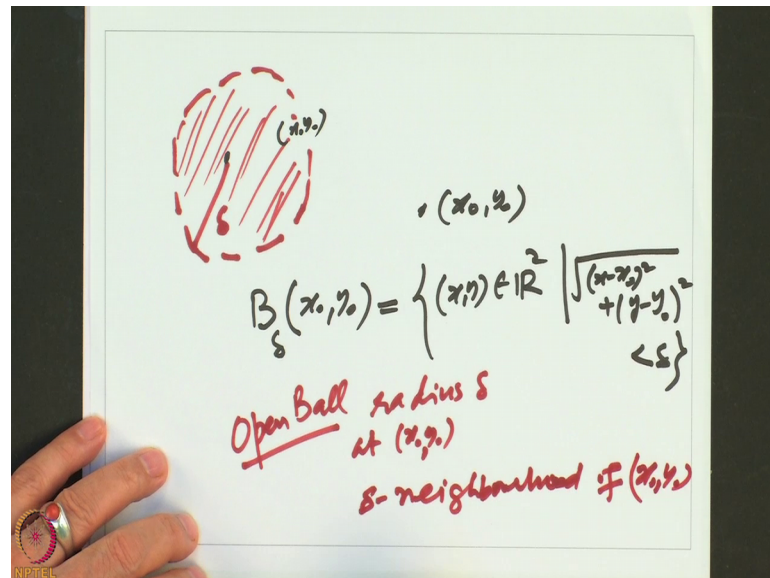 (x₀y₀)
δ
• (x₀, y₀)
B_δ (x₀, y₀) = { (x,y) ∈ ℝ² | √(x-x₀)² + (y-y₀)² < δ }
Open Ball radius δ
at (x₀,y₀)
δ-neighbourhood of (x₀,y₀)
NPTEL